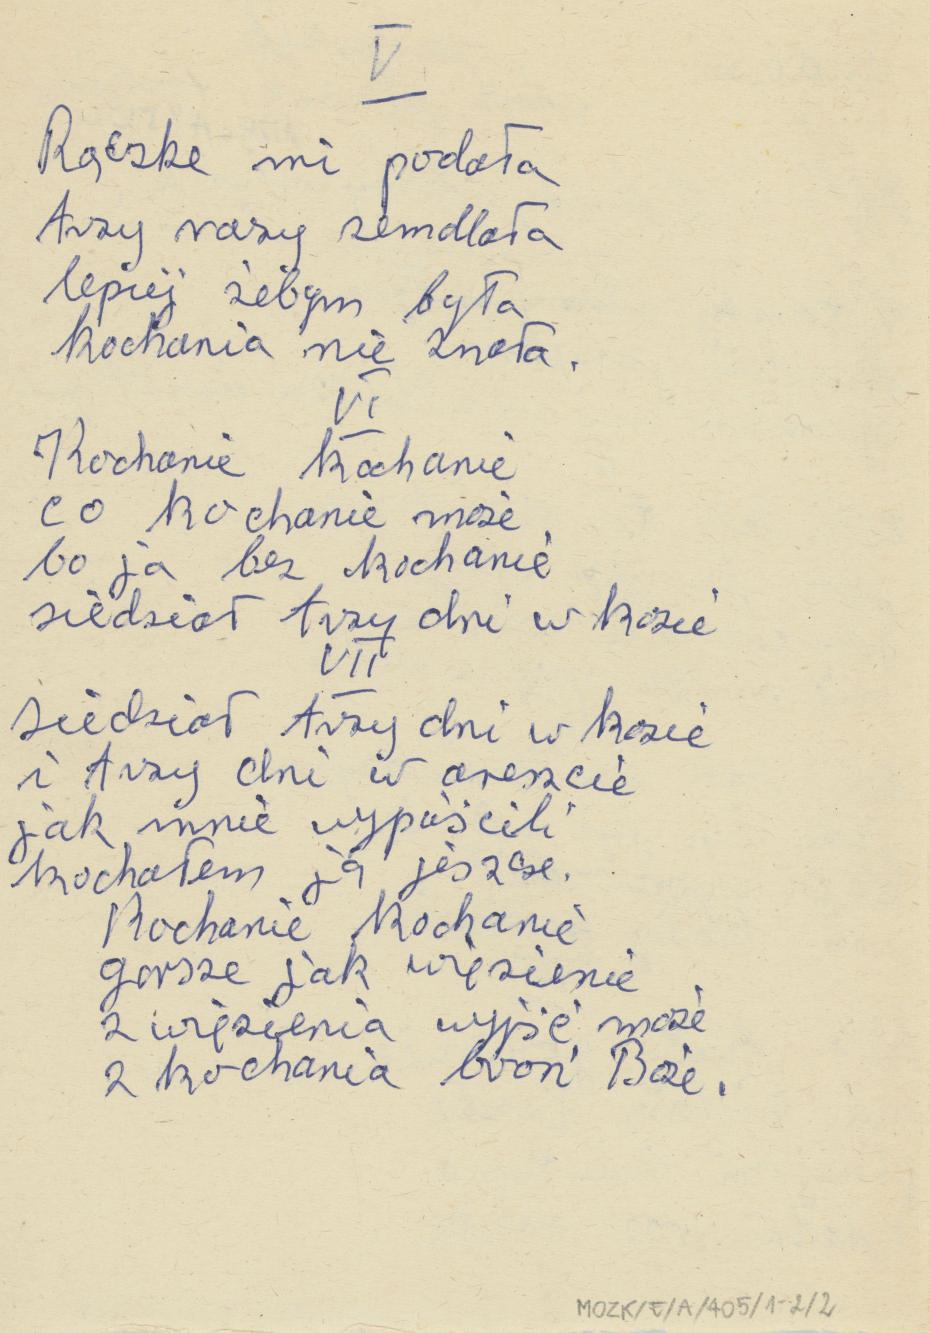 V
Rączke mi podała
trzy razy zemdlała
lepiej żebym była
kochania nie znała.
VI
Kochanie kochanie
co kochanie może
bo ja bez kochanie
siedział trzy dni w kozie
VII
Siedział trzy dni w kozie
i trzy dni w areszcie
jak mnie wypuścili
kochałem ja jeszcze.
Kochanie kochanie
gorsze jak więzienie
z więzienia wyjść może
z kochania broń Boże.
MOZK/E/A/405/1-2/2